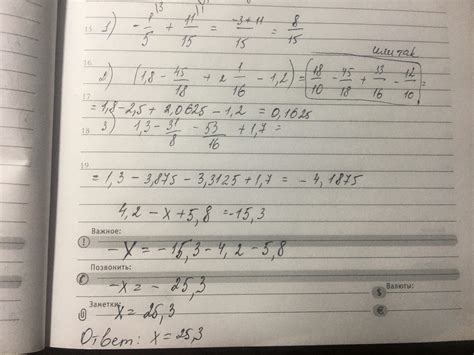 15 1) -1/5 + 11/15 = -3+11/15 = 8/15
или так
16 2) (1,8 - 45/18 + 2 1/16 - 1,2) (18/10 - 45/18 + 33/16 - 12/10 =
17 = 1,8 - 2,5 + 2,0625 - 1,2 = 0,1625
18 3) 1,3 - 31/8 - 53/16 + 1,7 =
19
= 1,3 - 3,875 - 3,3125 + 1,7 = - 4,1875
4,2 - x + 5,8 = -15,3
Важное:
- x = - 15,3 - 4,2 - 5,8
Позвонить:
- x = - 25,3
Валюты:
Заметки:
x = 25,3
Ответ: x = 25,3